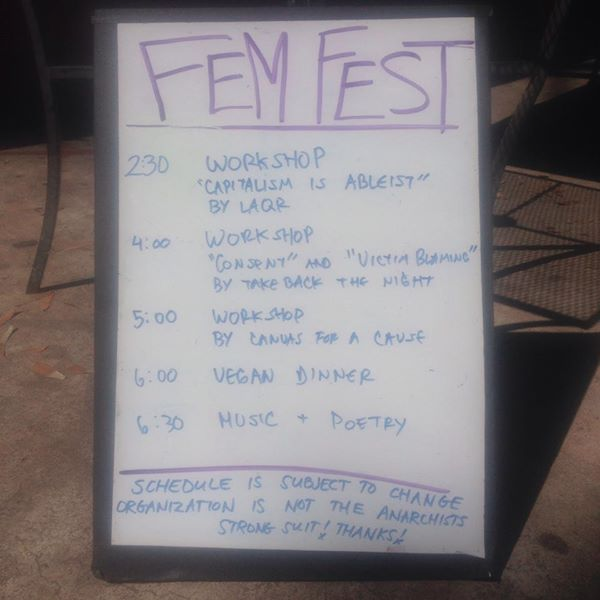 FEM FEST
2:30 WORKSHOP
"CAPITALISM IS ABLEIST"
BY LAQR
4:00 WORKSHOP
"CONSENT" AND "VICTIM BLAMING"
BY TAKE BACK THE NIGHT
5:00 WORKSHOP
BY CANVAS FOR A CAUSE
6:00 VEGAN DINNER
6:30 MUSIC + POETRY
SCHEDULE IS SUBJECT TO CHANGE
ORGANIZATION IS NOT THE ANARCHISTS
STRONG SUIT! THANKS!